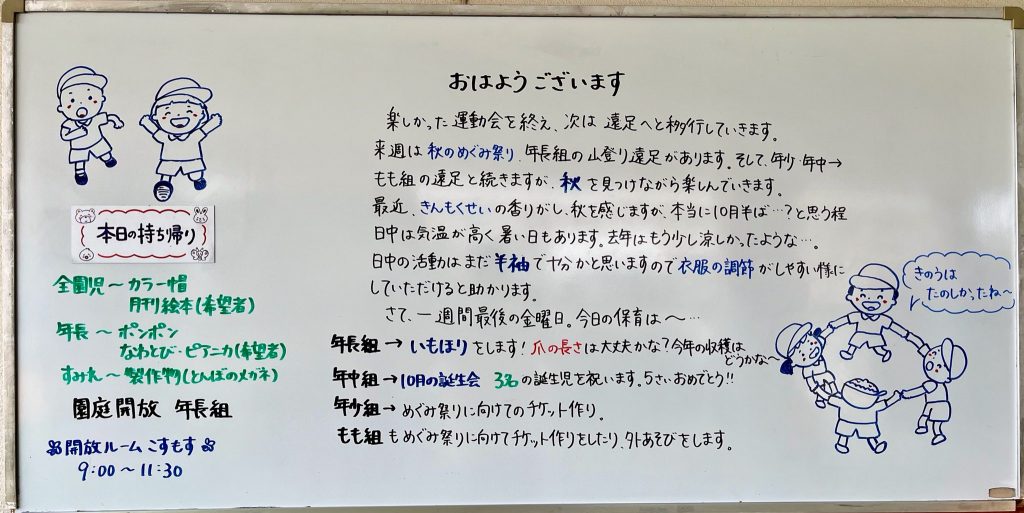 おはようございます
楽しかった運動会を終え、次は遠足へと移行していきます。
来週は秋のめぐみ祭り、年長組の山登り遠足があります。そして、年少・年中→
もも組の遠足と続きますが、秋を見つけながら楽しんでいきます。
最近、きんもくせいの香りがし、秋を感じますが、本当に10月半ば…?と思う程
日中は気温が高く暑い日もあります。去年はもう少し涼しかったような…。
日中の活動はまだ半袖で十分かと思いますので衣服の調節がしやすい様に
していただけると助かります。
さて、一週間最後の金曜日。今日の保育は〜…
年長組→いもほりをします!爪の長さは大丈夫かな?今年の収穫は
どうかな〜
年中組→10月の誕生会 3名の誕生児を祝います。5さいおめでとう!!
年少組→めぐみ祭りに向けてのチケット作り。
もも組もめぐみ祭りに向けてチケット作りをしたり、外あそびをします。
本日の持ち帰り
全園児〜カラー帽
月刊絵本(希望者)
年長〜ポンポン
なわとび・ピアニカ(希望者)
すみれ〜製作物(とんぼのメガネ)
園庭開放 年長組
開放ルーム こすもす
9:00〜11:30
きのうは
たのしかったね〜